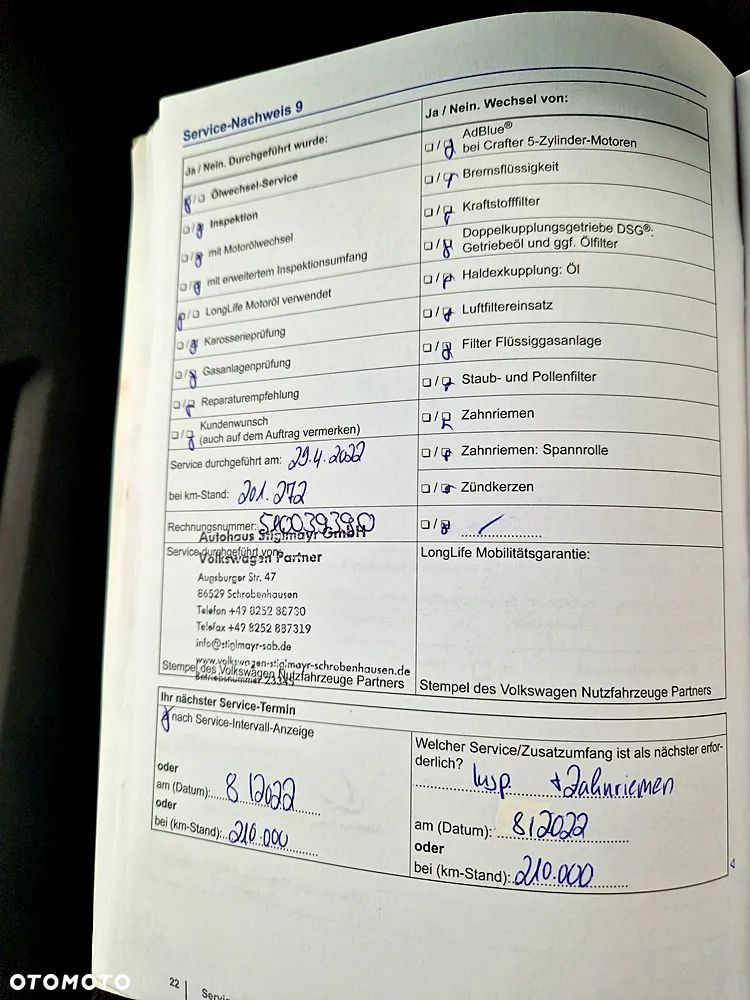 Service-Nachweis 9
Ja / Nein. Durchgeführt wurde:
Ölwechsel-Service
Inspektion
mit Motorölwechsel
mit erweitertem Inspektionsumfang
LongLife Motoröl verwendet
Karosserieprüfung
Gasanlagenprüfung
Reparaturempfehlung
Kundenwunsch
(auch auf dem Auftrag vermerken)
Service durchgeführt am: 29.4.2022
bei km-Stand: 201.272
Rechnungsnummer:
Autohaus Stiglmayr GmbH
Service durchgeführt von:
Volkswagen Partner
Augsburger Str. 47
86529 Schrobenhausen
Telefon +49 8252 88730
Telefax +49 8252 887319
info@stiglmayr-sob.de
www.volkswagen-stiglmayr-schrobenhausen.de
Betriebsnummer 23345
Stempel des Volkswagen Nutzfahrzeuge Partners
Ja / Nein. Wechsel von:
AdBlue®
bei Crafter 5-Zylinder-Motoren
Bremsflüssigkeit
Kraftstofffilter
Doppelkupplungsgetriebe DSG®:
Getriebeöl und ggf. Ölfilter
Haldexkupplung: Öl
Luftfiltereinsatz
Filter Flüssiggasanlage
Staub- und Pollenfilter
Zahnriemen
Zahnriemen: Spannrolle
Zündkerzen
LongLife Mobilitätsgarantie:
Stempel des Volkswagen Nutzfahrzeuge Partners
Ihr nächster Service-Termin
nach Service-Intervall-Anzeige
oder
am (Datum): 8/2022
oder
bei (km-Stand): 210.000
Welcher Service/Zusatzumfang ist als nächster erfor-
derlich?
Insp. + Zahnriemen
am (Datum): 8/2022
oder
bei (km-Stand): 210.000
22
OTOMOTO